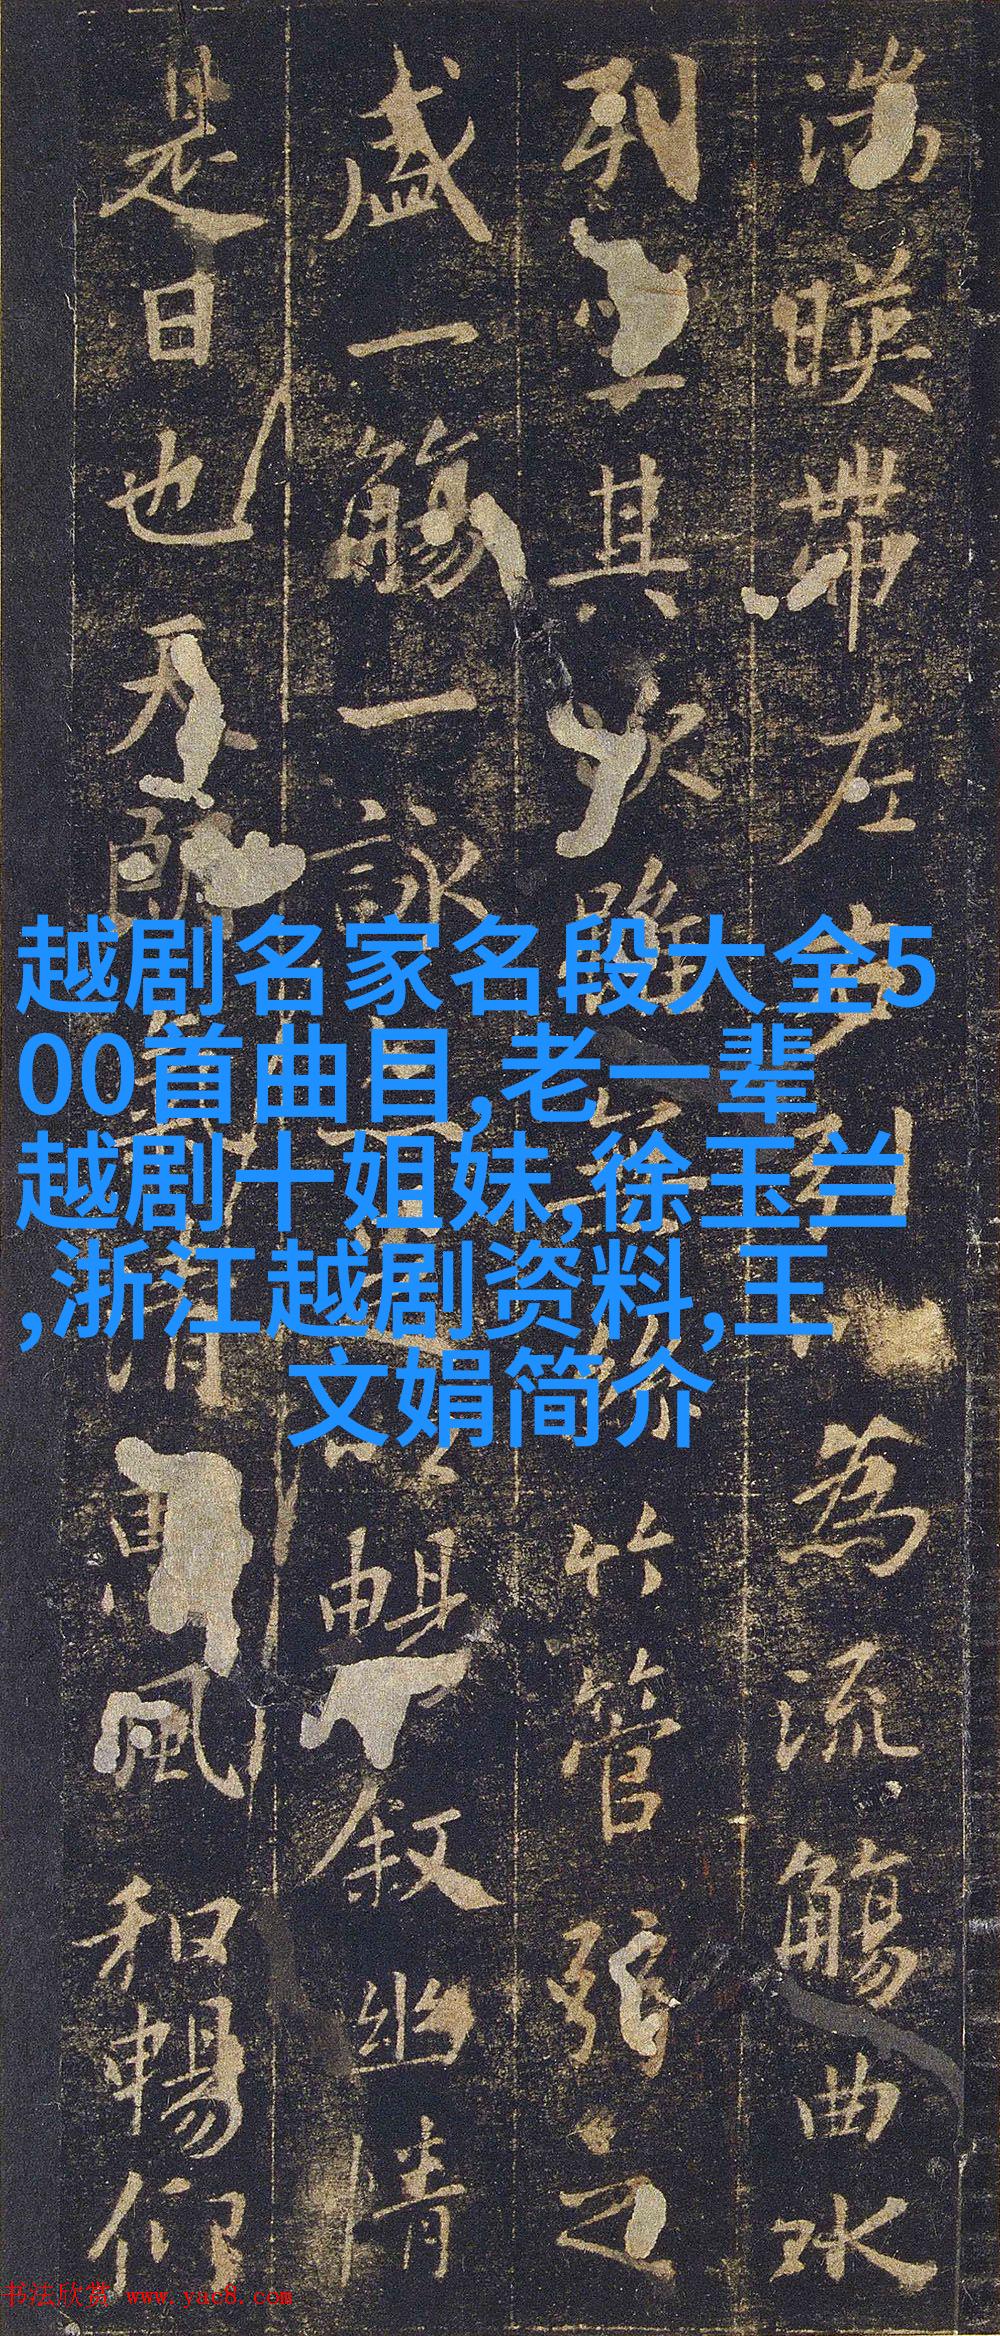 越剧名家名段大全5
00首曲目,老一辈
越剧十姐妹,徐玉兰
,浙江越剧资料,王
文娟简介
湍暎帶左右引以為流觴曲水
列坐其次雖無絲竹管弦之
盛一觴一詠亦足以暢叙幽情
是日也天朗氣清惠風和暢仰
书法欣赏 www.yac8.com